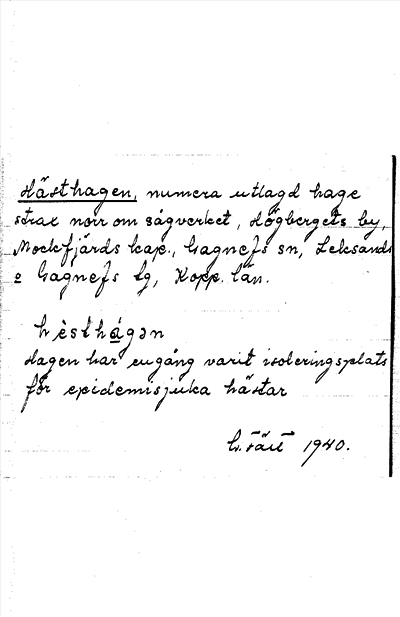 Hästhagen, numera utlagd hage
strax norr om sågverket, Högbergets by,
Mockfjärds kap., Gagnefs sn, Leksands
o Gagnefs tg, Kopp. län.
hèsthágən
Hagen har engång varit isoleringsplats
för epidemisjuka hästar
G. 1940.